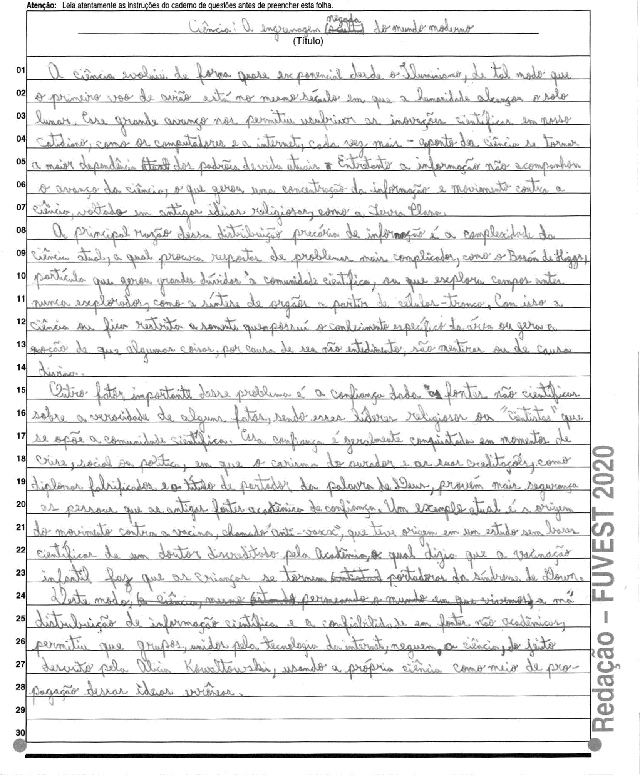 Atenção: Leia atentamente as instruções do caderno de questões antes de preencher esta folha.
Ciência: A engrenagem negada do mundo moderno
(Título)
01 A ciência evoluiu de forma quase exponencial desde o Iluminismo, de tal modo que
02 o primeiro voo de avião está no mesmo século em que a humanidade alcançou o solo
03 lunar. Esse grande avanço nos permitiu usufruir as inovações científicas em nosso
04 cotidiano, como os computadores e a internet, cada vez mais - a ponto da ciência se tornar
05 a maior dependência dos padrões de vida atuais. Entretanto a informação não acompanhou
06 o avanço da ciência, o que gerou uma concentração da informação e movimento contra a
07 ciência, voltado em antigas ideias religiosas, como a Terra Plana.
08 A principal razão dessa distribuição precária de informação é a complexidade da
09 ciência atual, a qual procura respostas de problemas mais complicados, como o Bosón de Higgs,
10 partícula que gerou grandes dúvidas à comunidade científica, ou que explora campos antes
11 nunca explorados, como a síntese de orgãos a partir de células-tronco. Com isso a
12 ciência ou fica restrita a somente quem possui o conhecimento específico da área ou gera a
13 noção de que algumas coisas, por causa de seu não entedimento, são mentiras ou de causa
14 divina.
15 Outro fator importante desse problema é a confiança dada às fontes não científicas
16 sobre a veracidade de alguns fatos, sendo esses líderes religiosos ou "cientistas" que
17 se opõe a comunidade científica. Essa confiança é geralmente conquistada em momentos de
18 crise, social ou política, em que o carisma do orador e as suas creditações, como
19 diplomas falsificados e o título de portador da palavra de Deus, provém mais segurança
20 as pessoas que as antigas fontes acadêmica de confiança. Um exemplo atual é a origem
21 do movimento contra a vacina, chamado "anti-vaxx", que teve origem em um estudo sem bases
22 científicas de um doutor pela Acadêmia, o qual dizia que a vacinação
23 infantil faz que as crianças se tornem portadoras da síndrome de Down.
24 Deste modo, a má
25 distribuição de informação científica e a confibilidade em fontes não acadêmicas,
26 permitiu que grupos, unidos pela tecnologia da internet, neguem a ciência, do jeito
27 descrito pela Alicia Kowaltowski, usando a própria ciência como meio de pro-
28 pagação dessas ideias errôneas.
29
30
Redação – FUVEST 2020